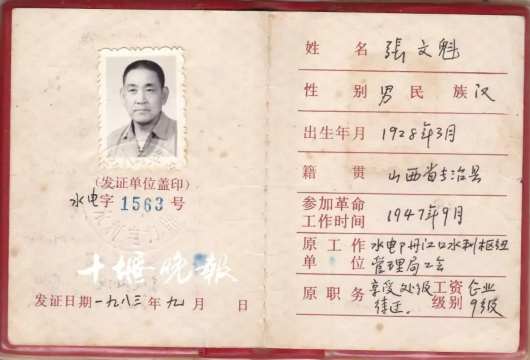 (发证单位盖印)
水电字 1563 号
十堰晚报
发证日期 一九八三年九月 日
姓名 張文魁
性别 男 民族 汉
出生年月 1928年3月
籍贯 山西省长治县
参加革命工作时间 1947年9月
原工作单位 水电部丹江口水利枢纽
管理局工会
原职务 享受处级待迂. 工资级别 企业9级